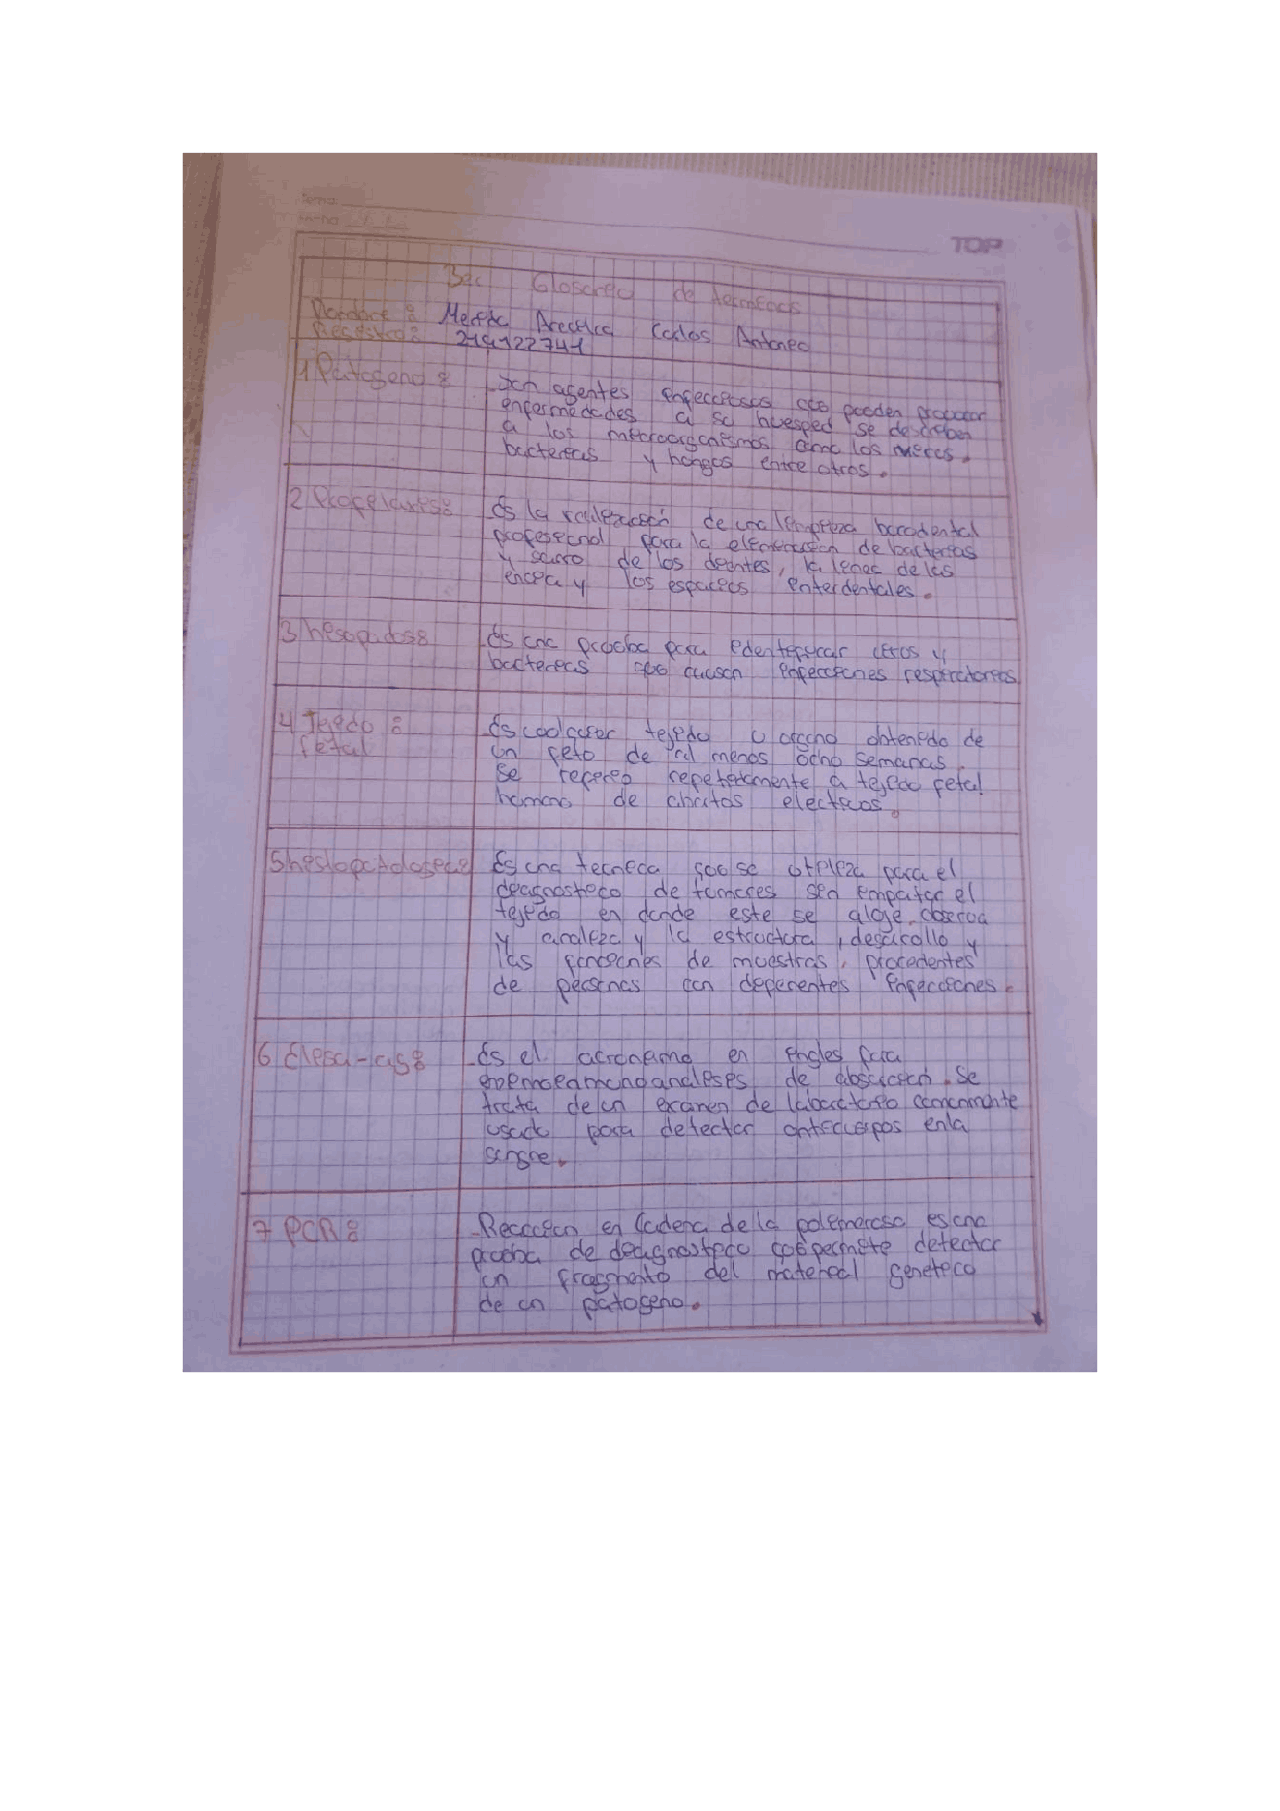 Tema:
Fecha:
TOP
3er Glosario de Terminos
Nombre: Carlos Antonio
Registro: 219122741
1 Patogeno: Son agentes infecciosos que pueden provocar
enfermedades a su huesped se describen
a los microorganismos como los
bacterias y hongos entre otros.
2 Profelaxes: Es la realización de una limpieza
profesional para la eliminación de bacterias
y sarro de los dientes, la linea de las
encia y los espacios interdentales.
3 hesopados: Es una prueba para identificar virus y
bacterias que causan infecciones respiratorias
4 Tejido: Es cualquier tejido u organo obtenido de
fetal un feto de al menos ocho semanas.
Se refereo repetidamente a tejido fetal
humano de abortos electivos.
5 hestopatologea: Es una tecnica que se utiliza para el
deagnosteco de tumores sin empatar el
tejido en donde este se aloje. observa
y analiza y la estructura, desarrollo y
las funciones de muestras, procedentes
de personas con deferentes infecciones.
6 Elesa-as: Es el acronimo en ingles para
de absorción. Se
trata de un examen de laboratorio comunmente
usado para detectar anticuerpos en la
sangre.
7 PCR: Reaccion en Cadena de la polimerasa, es una
prueba de deagnosteco que permite detectar
un fragmento del material genetico
de un patogeno.